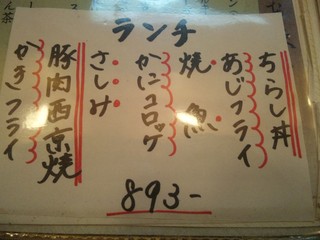 ランチ
ちらし丼
あじフライ
焼魚
かにコロッケ
さしみ
豚肉西京焼
かきフライ
893-